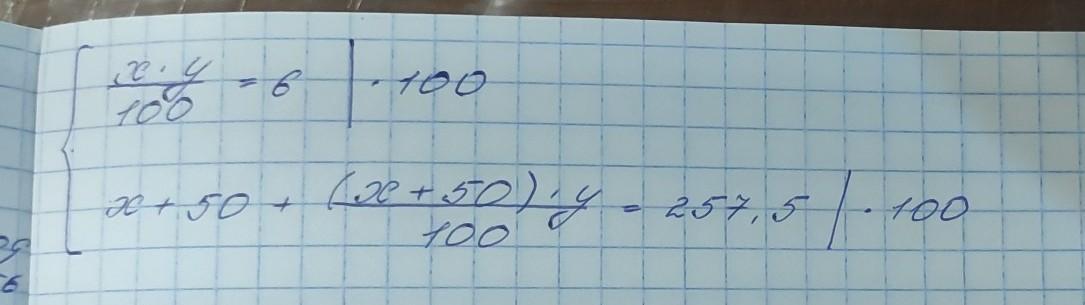 x · y / 100 = 6 | · 100
x + 50 + (x + 50) · y / 100 = 257,5 | · 100